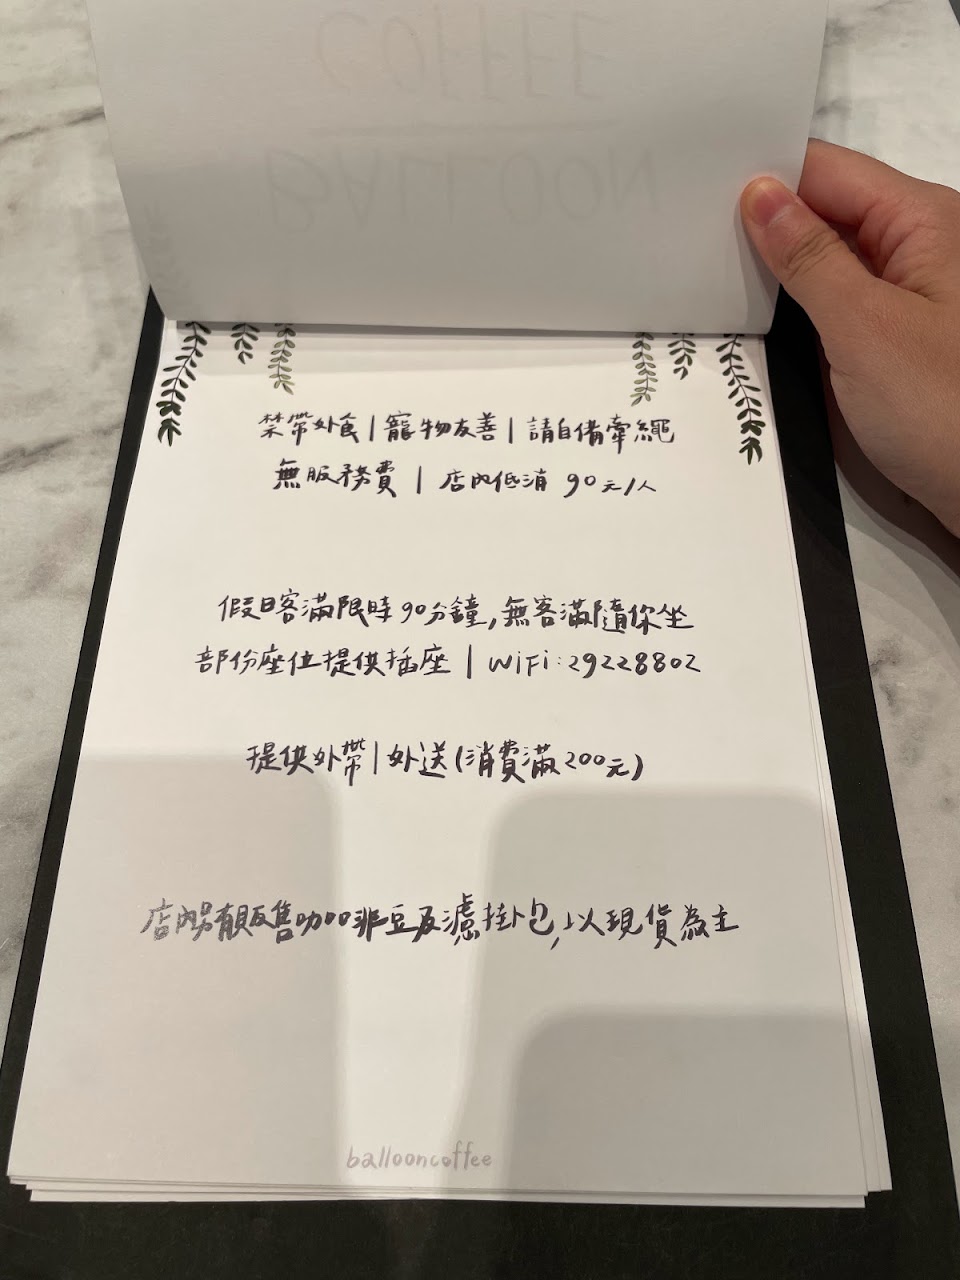 COFFEE
BALLOON
禁帶外食|寵物友善|請自備牽繩
無服務費 | 店內低消 90元/人
假日客滿限時90分鐘,無客滿隨你坐
部份座位提供插座 | WiFi:29228802
提供外帶|外送(消費滿200元)
店內另有販售咖啡豆及濾掛包,以現貨為主
ballooncoffee